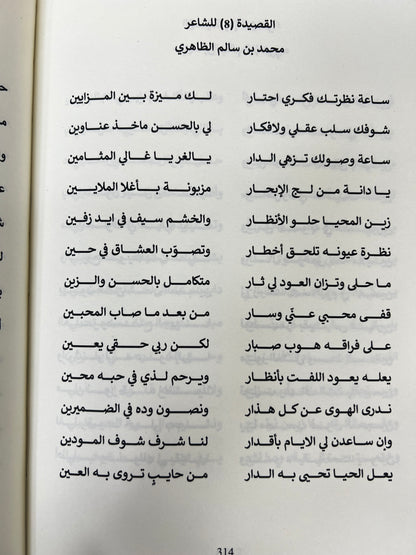 القصيدة (8) للشاعر
محمد بن سالم الظاهري
ساعة نظرتك فكري احتار لـك ميزة بين المزايين
شوفك سلب عقلي ولافكار لي بالحسن ماخذ عناوين
ساعة وصولك تزهي الدار يالغر يا غالي المثامين
يا دانة من لج الإبحار مزبونة بأغلا الملايين
زين المحيا حلو الأنظار والخشم سيف في ايد زفين
نظرة عيونه تلحق أخطار وتصوّب العشاق في حين
ما حلى وتزان العود لي ثار متكامل بالحسن والزين
قفى محبي عنّي وسار من بعد ما صاب المحبين
على فراقه هوب صبار لكن ربي حقي يعين
يعله يعود اللفت بأنظار ويرحم لذي في حبه محين
ندرى الهوى عن كل هذار ونصون وده في الضميرين
وإن ساعدن لي الايام بأقدار لنا شرف شوف المودين
يعل الحيا تحيي به الدار من حايبٍ تروى به العين
314